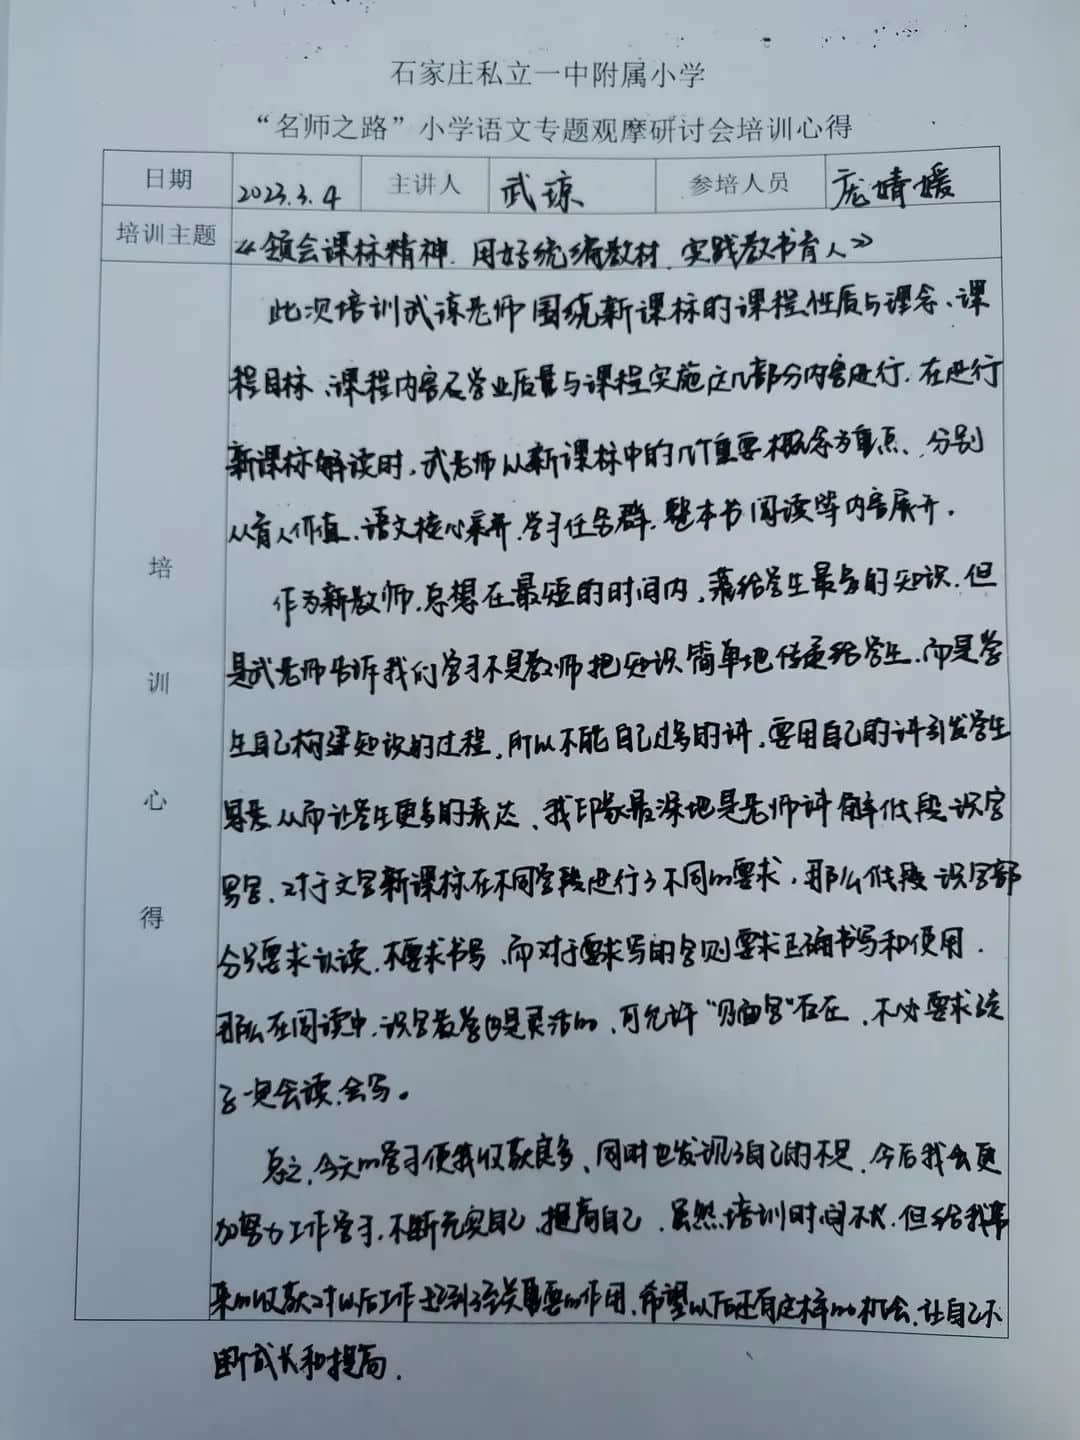 石家庄私立一中附属小学
“名师之路”小学语文专题观摩研讨会培训心得
日期 2023.3.4 主讲人 武琼 参培人员 庞婧媛
培训主题 《领会课标精神.用好统编教材.实践教书育人》
培训心得
此次培训武琼老师围绕新课标的课程性质与理念、课
程目标、课程内容及学业质量与课程实施这几部分内容进行.在进行
新课标解读时,武老师从新课标中的几个重要概念为重点、分别
从育人价值、语文核心素养.学习任务群.整本书阅读等内容展开.
作为新教师.总想在最短的时间内,落给学生最多的知识.但
是武老师告诉我们学习不是教师把知识简单地传递给学生.而是学
生自己构建知识的过程,所以不能自己过多的讲,要用自己的讲引发学生
思考从而让学生更多的表达、我印象最深地是老师讲解低段识字
写字.对于文字新课标在不同学段进行了不同的要求,那么低段识字部
分只要求认读.不要求书写.而对于要求写的字则要求正确书写和使用.
那么在阅读中.识字教学也是灵活的,可允许“ 字”存在,不必要求孩
子一定会读.会写。
总之,今天的学习使我收获良多、同时也发现了自己的不足.今后我会更
加努力工作学习,不断充实自己.提高自己.虽然培训时间不长.但给我带
来的收获对以后工作起到至关重要的作用.希望以后还有这样的机会.让自己不
断成长和提高.